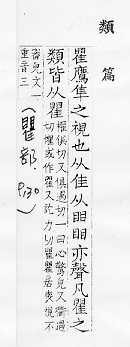 類篇
瞿鷹隼之視也从隹从䀠䀠亦聲凡瞿之
類皆从瞿
權俱切又俱遇切一曰心驚皃又衢遇
切懼或作瞿又訖力切瞿瞿居喪視不
審皃文一
重音三
(瞿部. P.130)